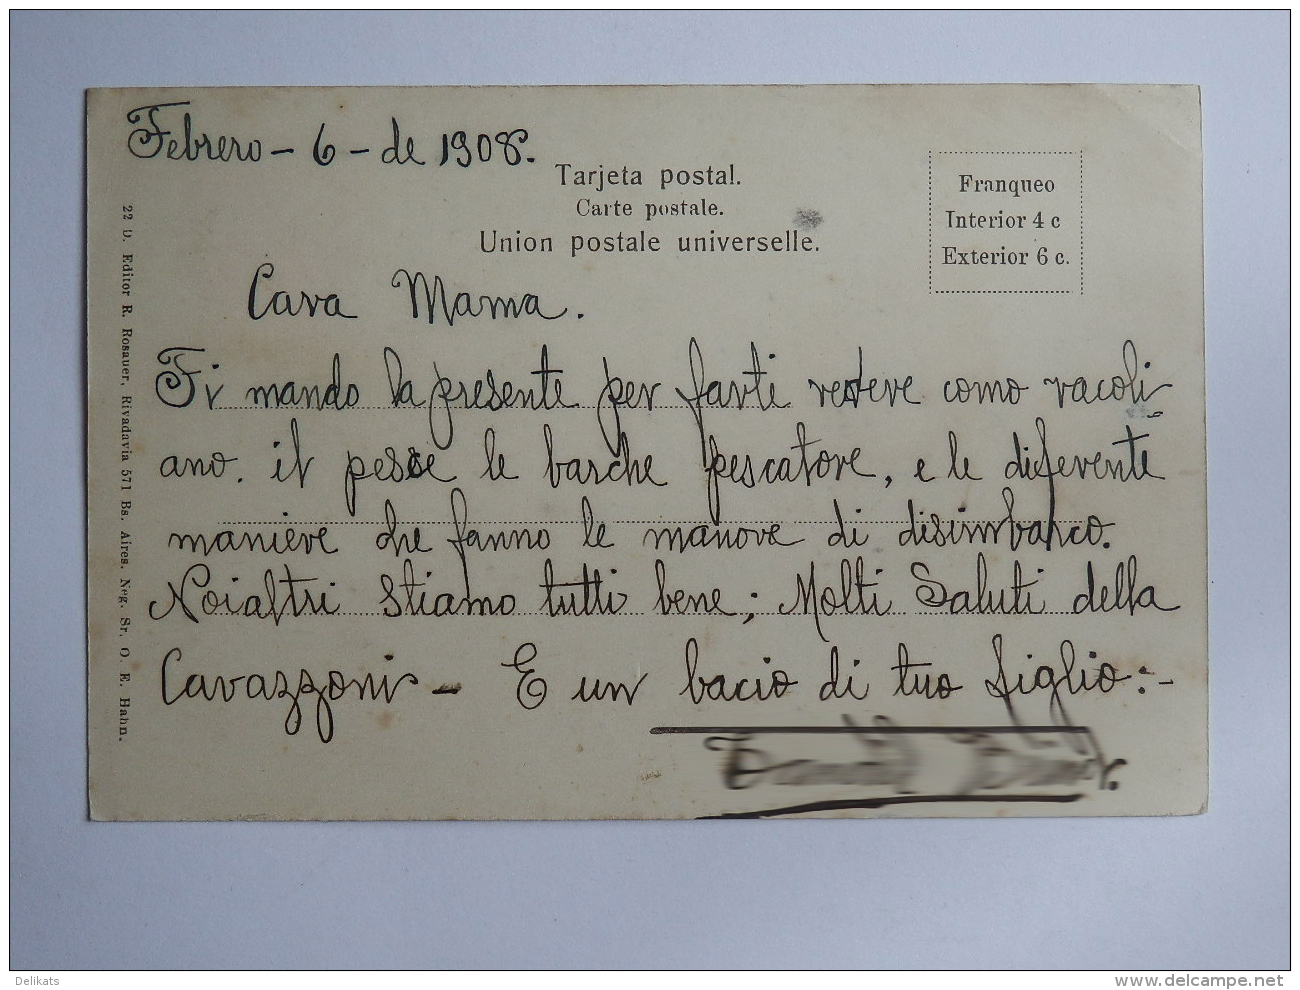 Febrero - 6 - de 1908.
Tarjeta postal.
Carte postale.
Union postale universelle.
Franqueo
Interior 4 c
Exterior 6 c.
22 D. Editor R. Rosauer, Rivadavia 571 Bs. Aires. Neg. Sr. O. E. Hahn.
Cara Mama.
Ti mando la presente per farti vedere como racoli
ano. il pesce le barche pescatore, e le diferente
maniere che fanno le manovre di disimbarco.
Noialtri stiamo tutti bene; Molti Saluti della
Cavazzoni - E un bacio di tuo figlio:-
Delikats
www.delcampe.net